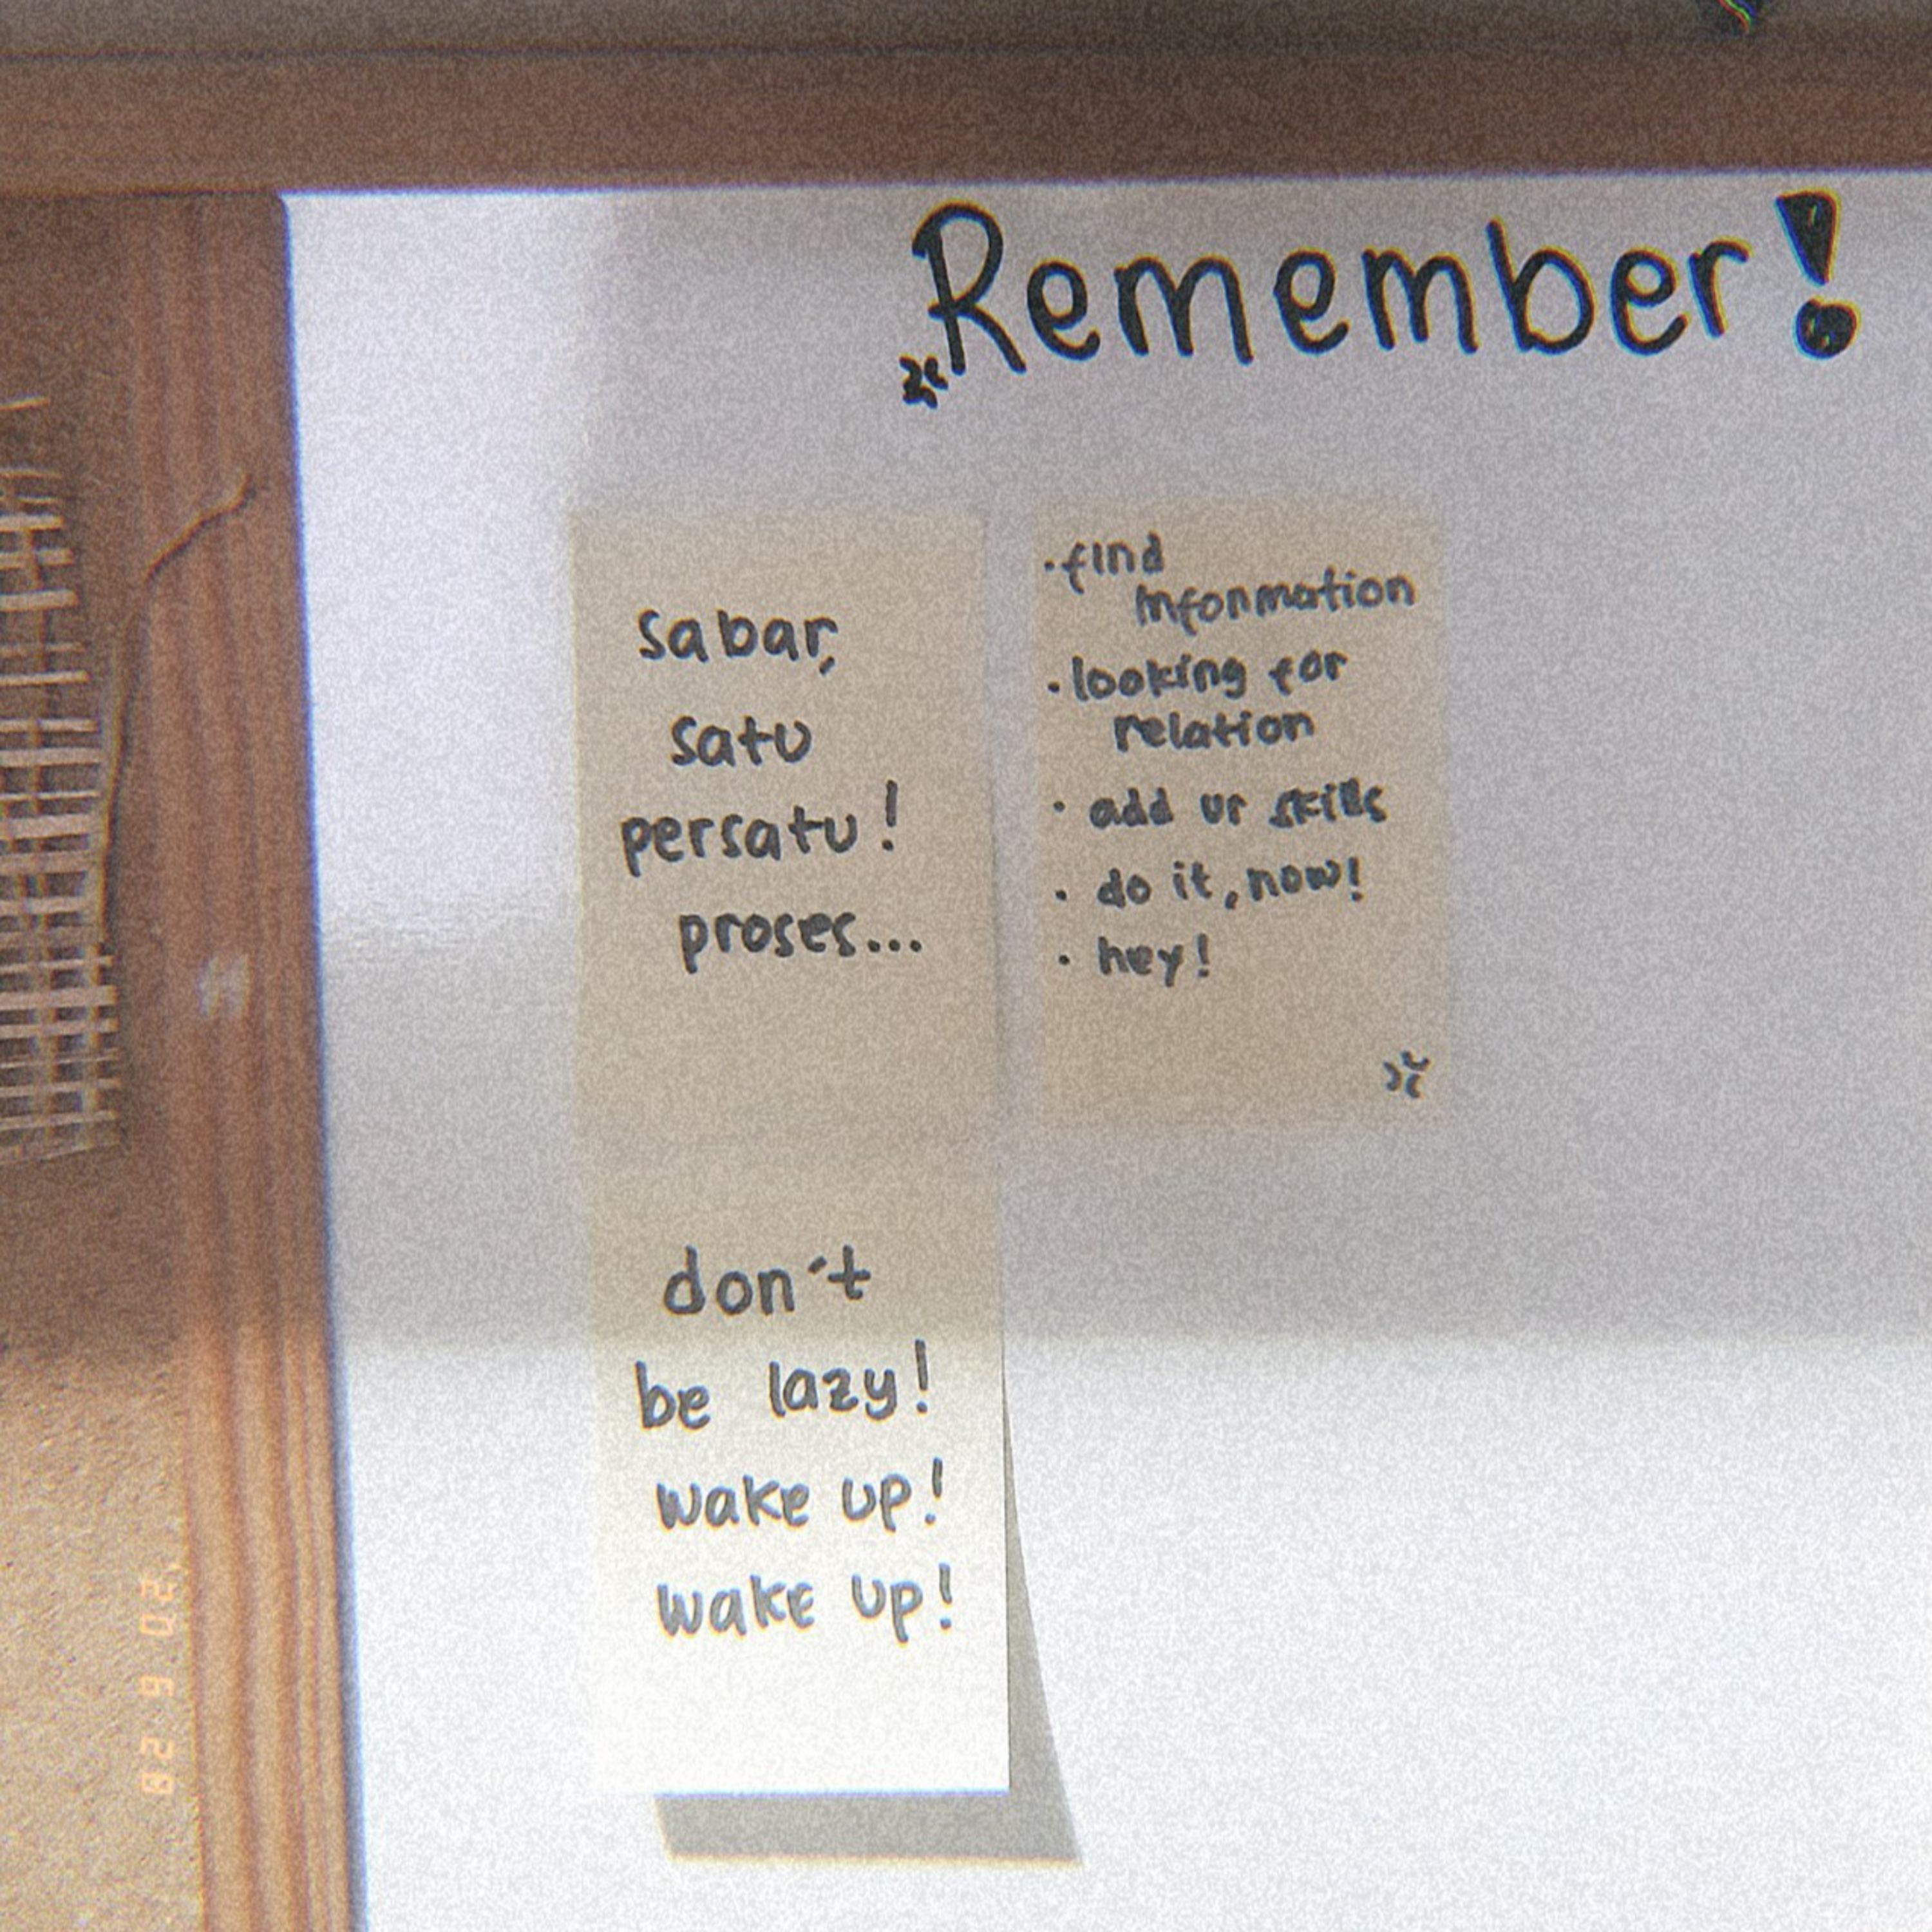 Remember!
sabar,
satu
persatu!
proses...
don't
be lazy!
wake up!
wake up!
·find
information
·looking for
relation
· add ur skills
· do it, now!
· hey!